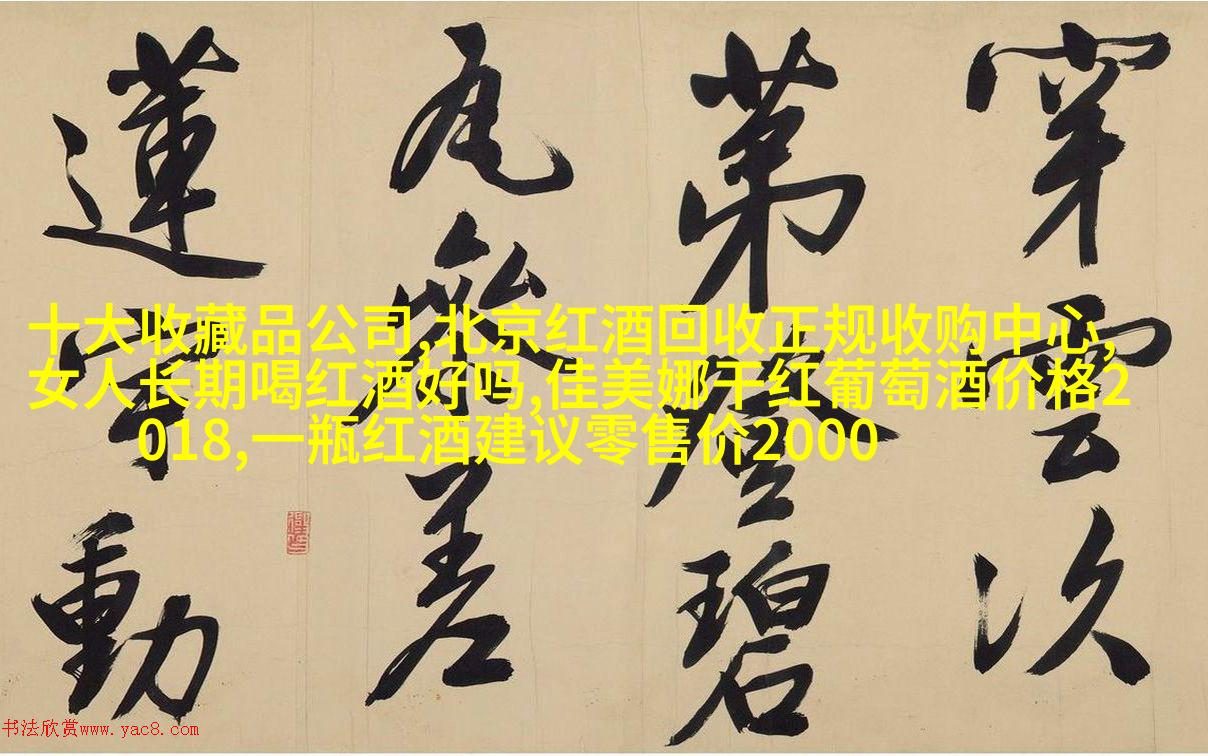 穿雲次
第登碧
瓦參差
蓮宇動
十大收藏品公司,北京红酒回收正规收购中心,
女人长期喝红酒好吗,佳美娜干红葡萄酒价格2
018,一瓶红酒建议零售价2000
书法欣赏www.yac8.com